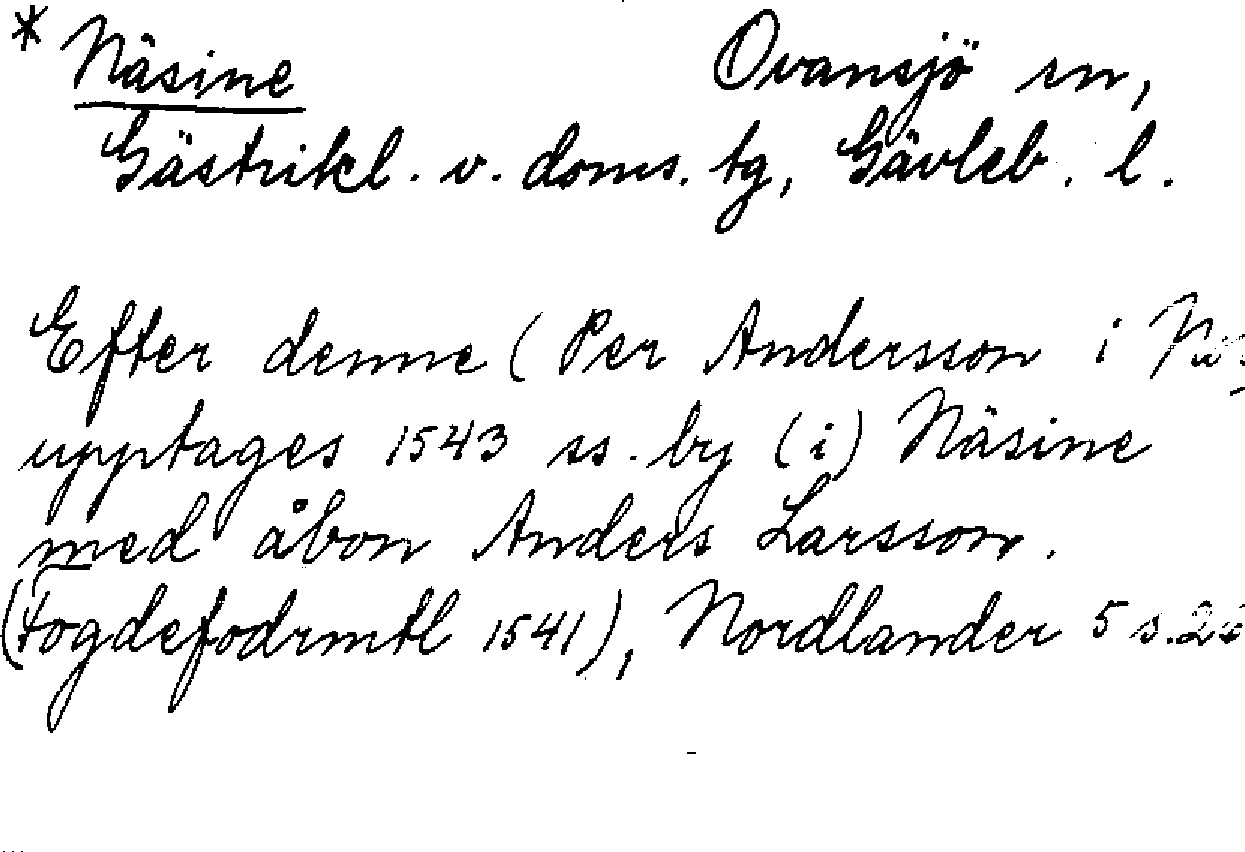 * Näsine Ovansjö sn,
Gästrikl. v. doms. tg, Gävleb. l.
Efter denne (Per Andersson i
upptages 1543 ss. by (i) Näsine
med åbon Anders Larsson.
(Fogdefodrmtl 1541), Nordlander 5 s.